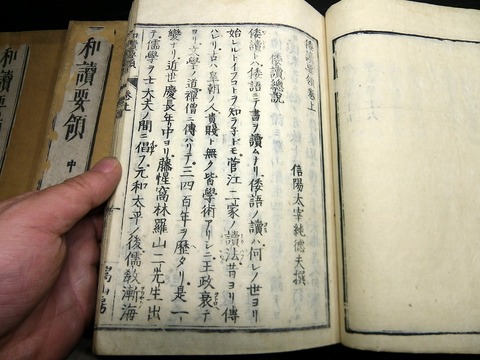 倭讀要領卷上
信陽太宰純德夫撰
倭讀總說
倭讀トハ倭語ニテ書ヲ讀ムナリ倭語ノ讀ハ何レノ世ヨリ
始レルトイフコトヲ知ラ子ドモ菅江二家ノ讀法昔ヨリ傳
ハレリ古ハ皇朝ノ人貴賤ト無ク皆學術アリシニ王政衰テ
ヨリ文學ノ道禪僧ニ傳ハリテ三四百年ヲ歷タリ是一
變ナリ近世慶長年中ヨリ藤惺窩林羅山二先生出
テ儒學ヲ士大夫ノ間ニ倡フ元和太平ノ後儒敎漸海
和讀要領 卷上
嵩山房
和讀要領 中
和讀要